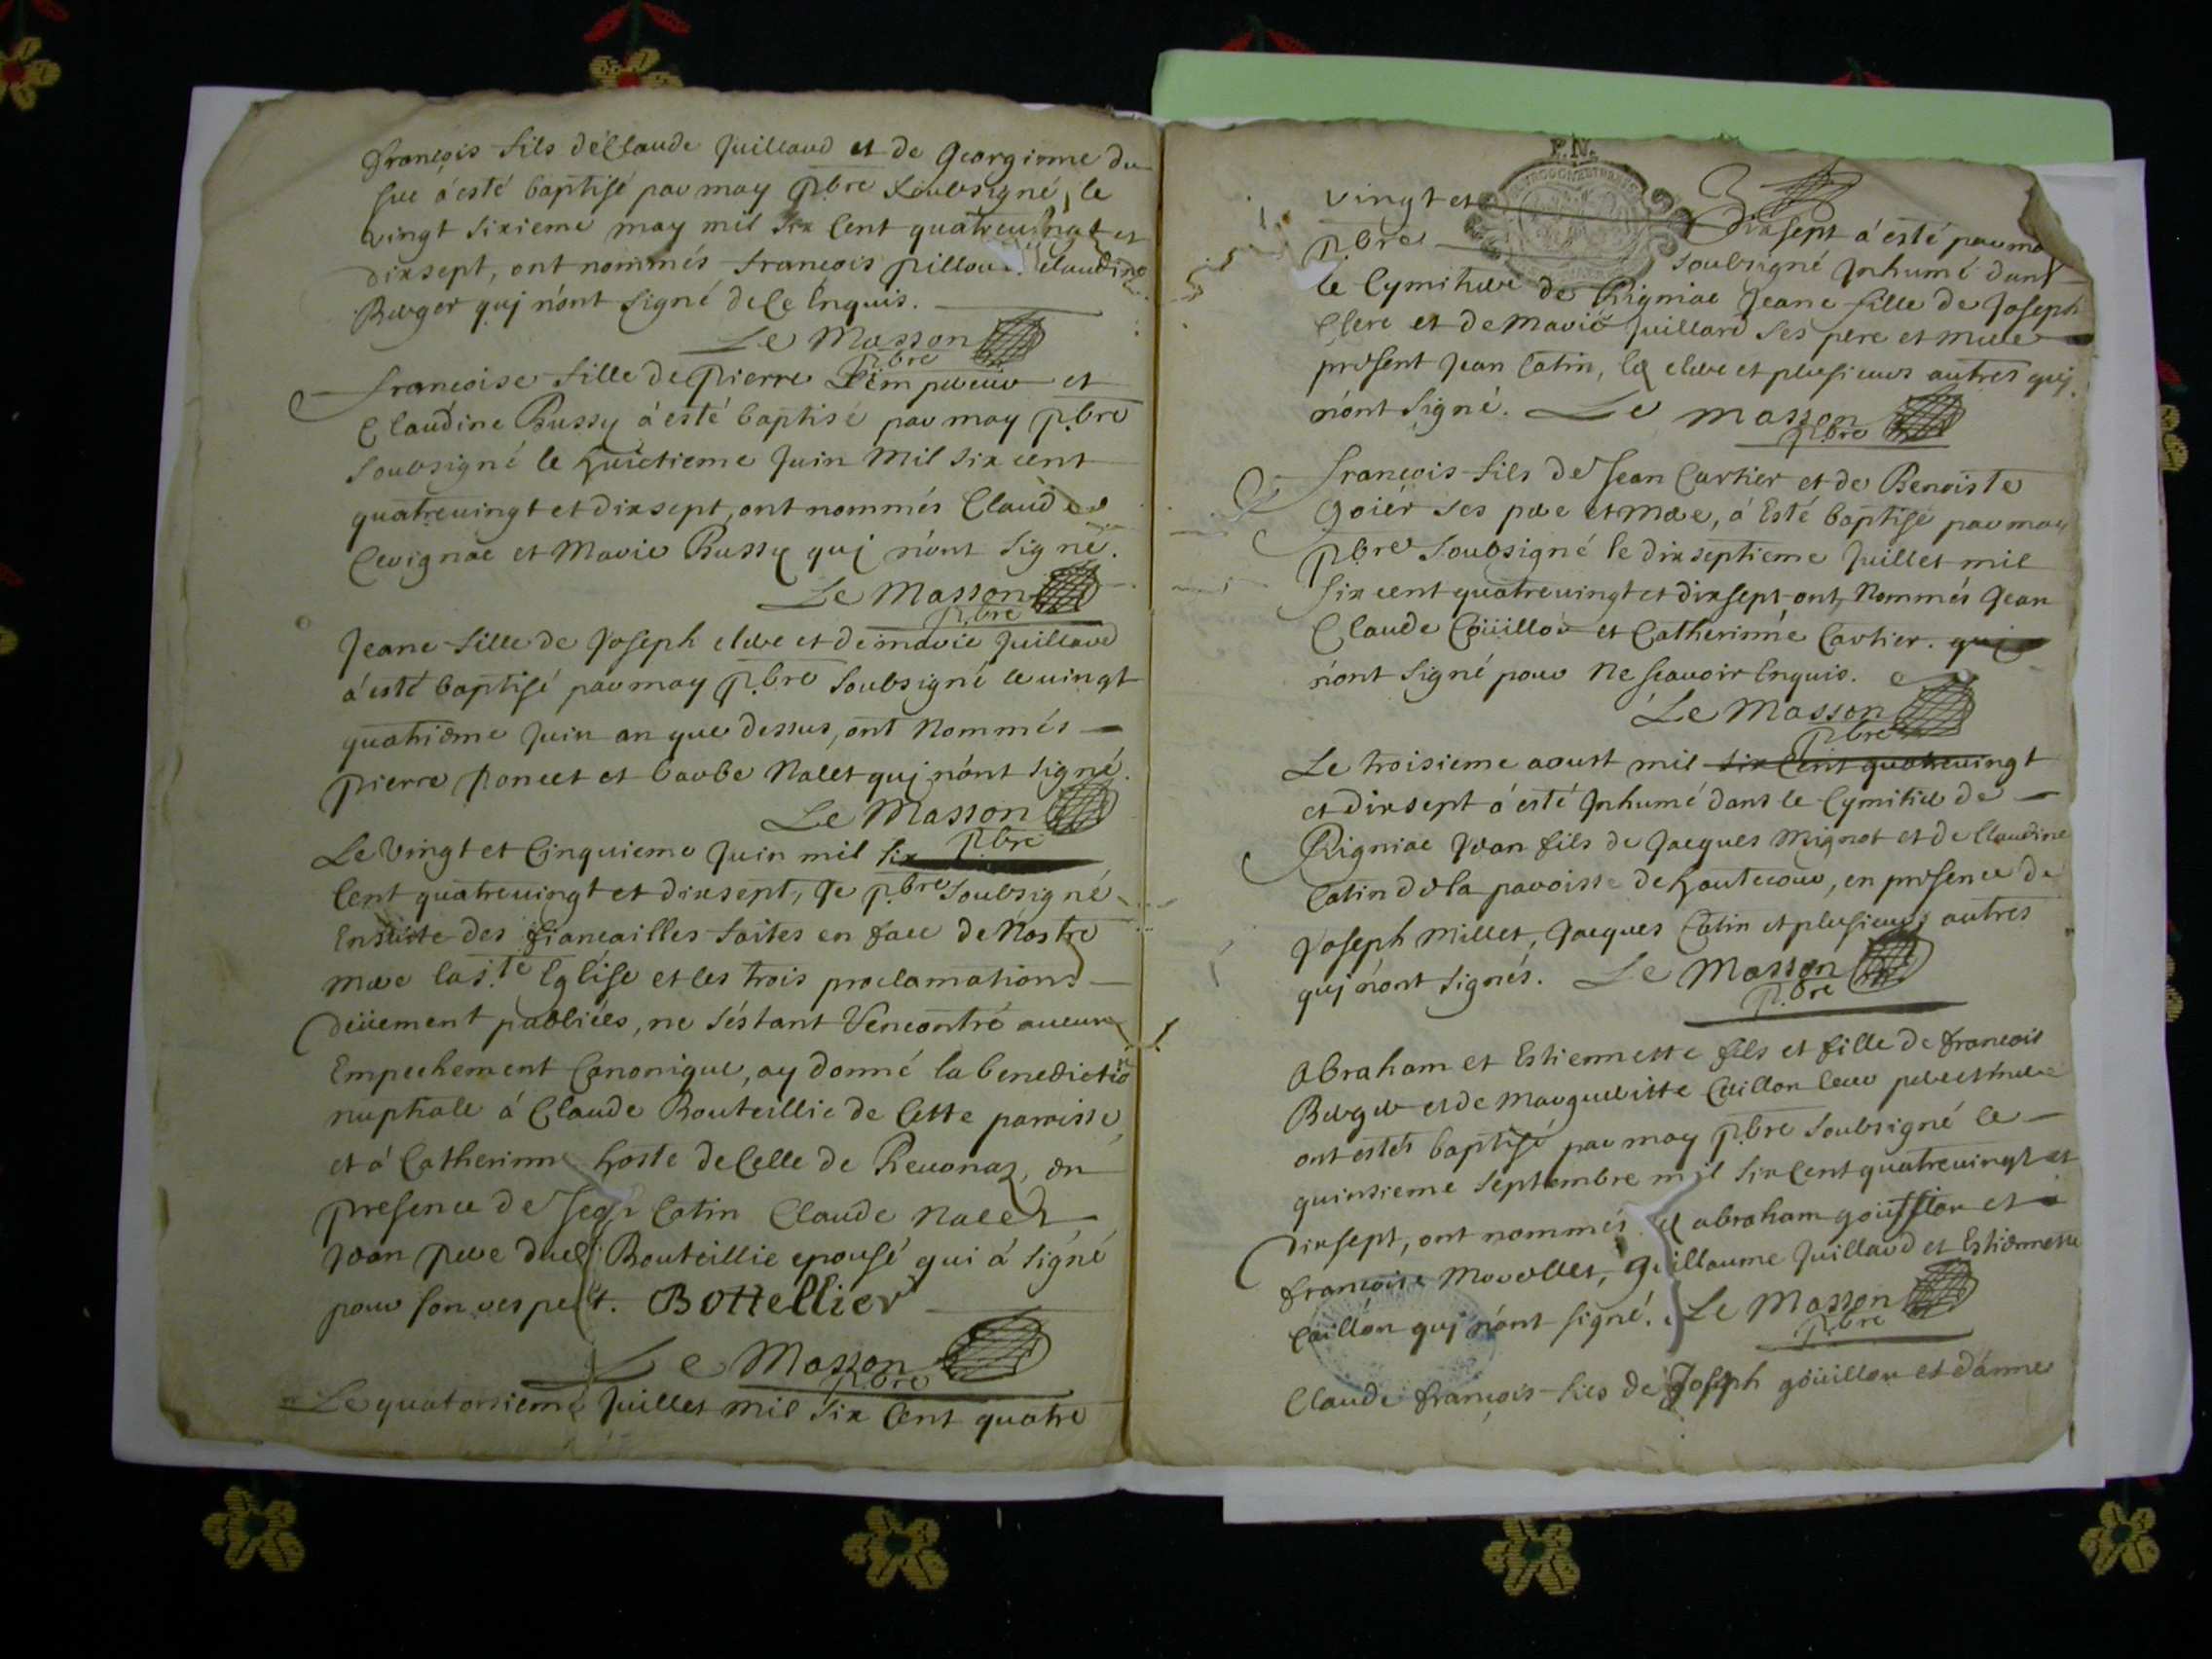 françois fils de Claude Juilland et de Georginne du
fue á esté baptisé par moy pbre soubsigné, le
vingt sixieme may mil six Cent quatreuingt et
dixsept, ont nommés françois pillou claudine
Berger quj n'ont signé de Ce Enquis.
Le Masson
pbre
francoise fille de pierre Lempereur et
Claudine Bussy á esté baptisé par moy pbre
soubsigné le huictieme Juin mil six cent
quatreuingt et dixsept, ont nommés Claude
Cevignae et Marie Bussy quj n'ont signé.
Le Masson
pbre
Jeane fille de Joseph clere et de marie Juillard
á esté baptisé par moy pbre soubsigné le uingt
quatrieme Juin an que dessus, ont Nommés
pierre poncet et barbe Nalet quj n'ont signé.
Le Masson
pbre
Le Vingt et Cinquieme Juin mil six
Cent quatreuingt et dixsept, Je pbre soubsigné
Ensuite des fiancailles faites en face de Nostre
mere la ste Eglise et les trois proclamations
deüement publiées, ne s'éstant Rencontré aucun
Empechement Canonique, ay donné la benedictiõ
nuptiale á Claude Bouteillie de Cette parroisse,
et á Catherinne hoste de Celle de Reuonaz, en
presence de Catin Claude Nalet
Jean pere dud Bouteillie epousé qui á signé
pour son respect. Bottellier
Le Masson
pbre
Le quatorsieme Juillet mil six Cent quatre
vingt et dixsept á esté par moy
pbre soubsigné Inhumé dans
le Cymitiere de Rigniae Jeane fille de Joseph
Clere et de Marie Juillard ses pere et mere
present Jean Catin, clere et plusieurs autres quj
n'ont signé. Le Masson
pbre
françois fils de Jean Cartier et de Benoiste
Goiér ses pere et mere, á Esté baptisé par moy
pbre soubsigné le dixseptieme Juillet mil
six cent quatreuingt et dixsept ont Nommés Jean
Claude Goüillou et Catherinne Cartier. quj
n'ont signé pour Ne scauoir Enquis.
Le Masson
pbre
Le troisieme aoust mil six Cent quatreuingt
et dixsept á esté Inhumé dans le Cymitiere de
Rigniae Jean fils de Jacques Mignot et de Claudine
Catin de la paroisse de hautecour, en presence de
Joseph Millet, Jacques Catin et plusieurs autres
quj n'ont signés. Le Masson
pbre
Abraham et Estiennette fils et fille de françois
Berger et de Marguerite Caillon leur pere et mere
ont estés baptisé par moy pbre soubsigné le
quinsieme Septembre mil six Cent quatreuingt et
dixsept, ont nommés abraham goüillon et
françoise Morellet, Guillaume Juillard et Estiennette
Caillon quj n'ont signé. Le Masson
pbre
Claude françois fils de Joseph goüillon et d'anne